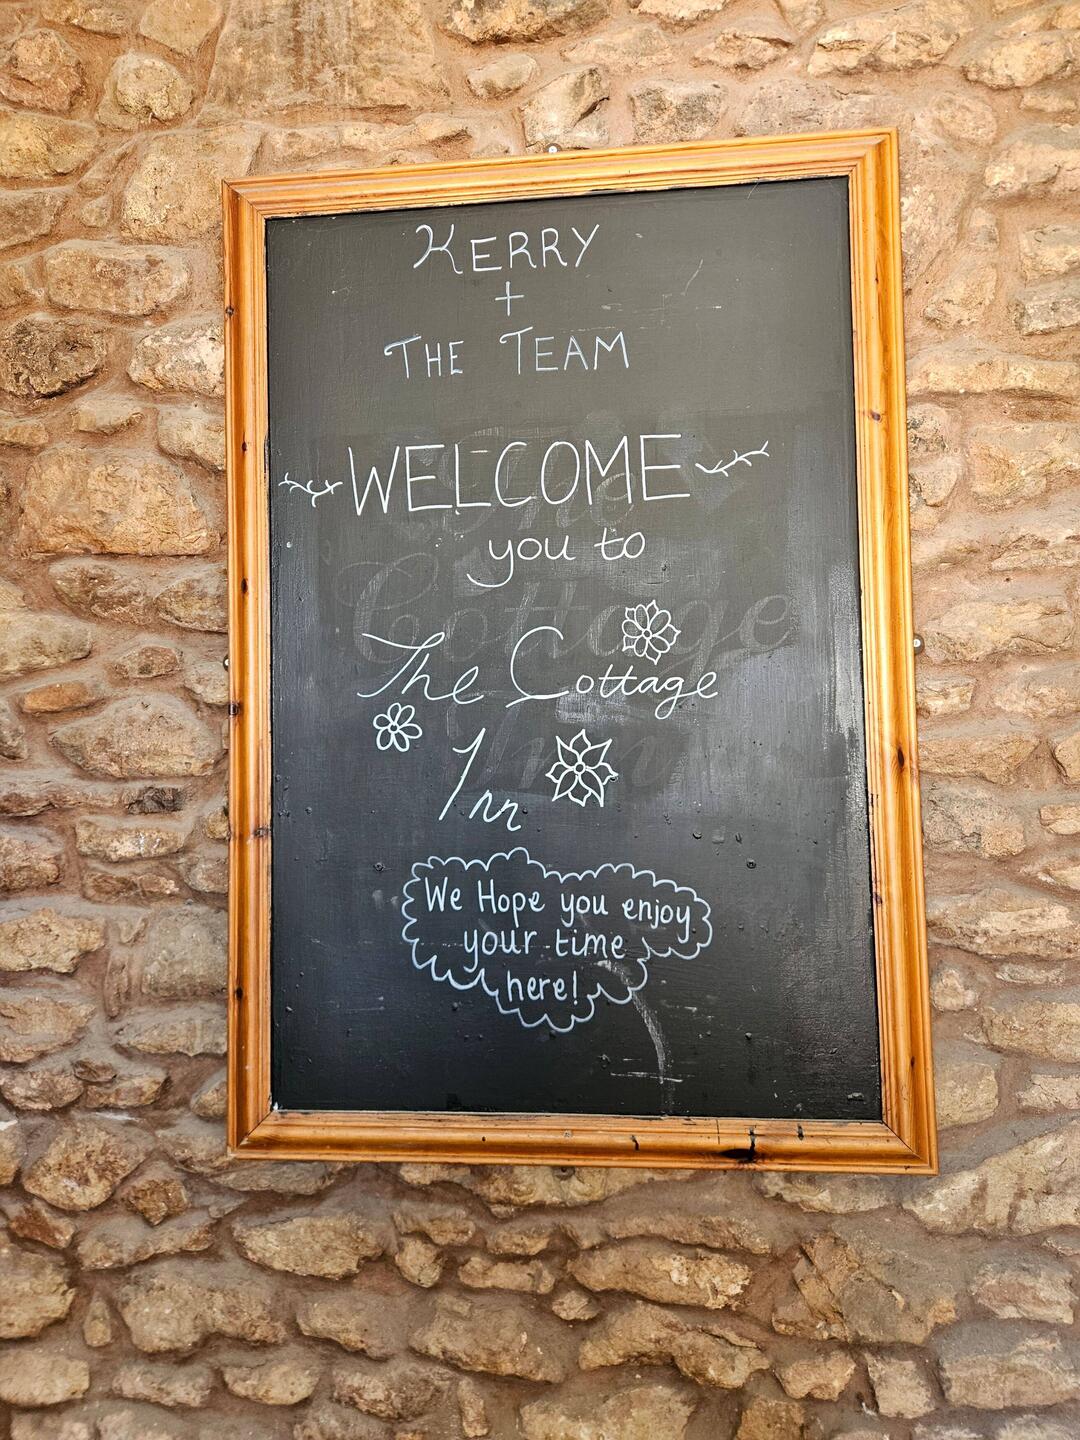 KERRY
+
THE TEAM
WELCOME
you to
The Cottage
Inn
We Hope you enjoy
your time
here!
The
Cottage
Inn